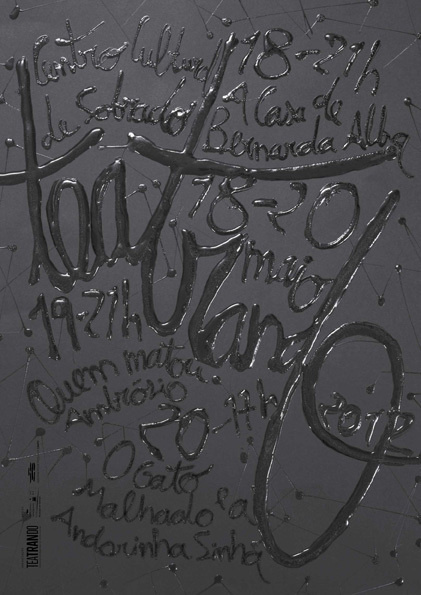 Centro Cultural
de Sobrado
18-21h
A Casa de
Bernarda Alba
teatrando
18-20
maio
2012
19-21h
Quem matou
Ambrósio
20-17h
O Gato
Malhado e a
Andorinha Sinhá
TEATRANDO